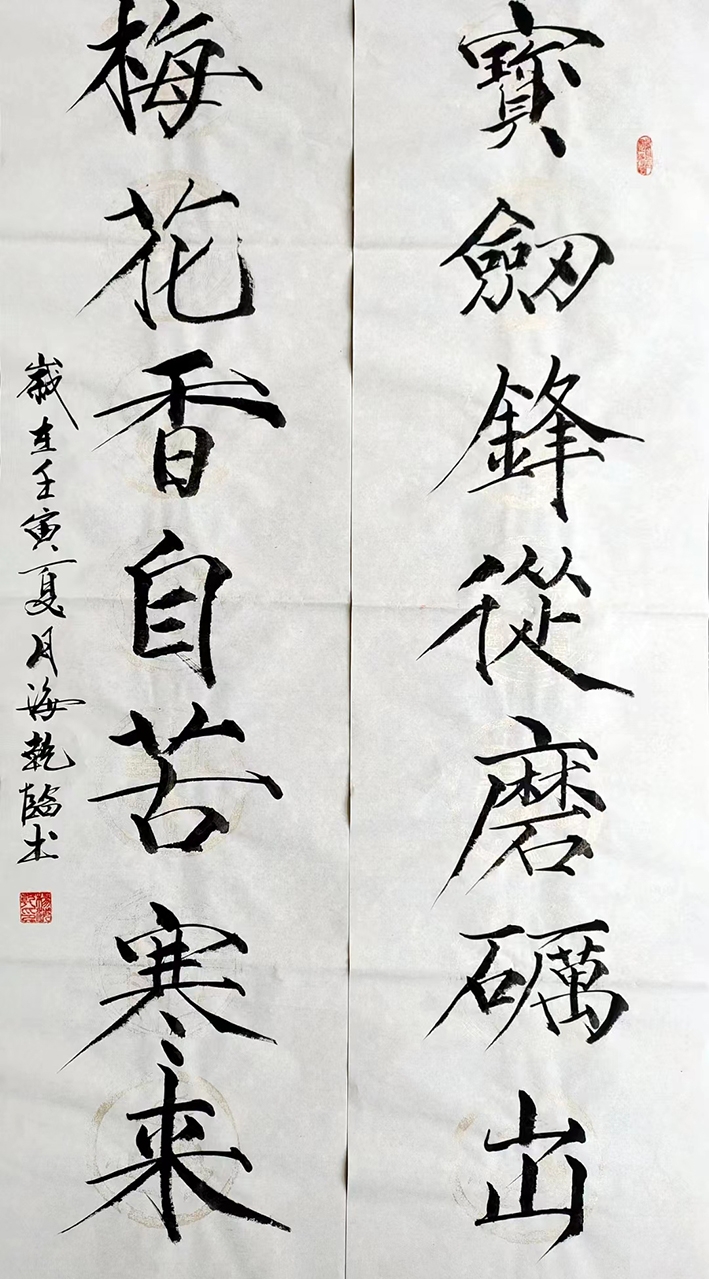 寶劒鋒從磨礪出
梅花香自苦寒來
歲在壬寅夏月海乾臨書